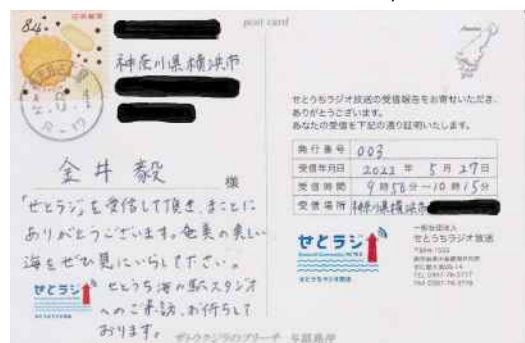 84
日本郵便
post card
神奈川県横浜市
金井 毅 様
「せとラジ」を受信して頂き、まことに
ありがとうございます。奄美の美しい
海をぜひ見にいらして下さい。
せとラジ
せとうち海の駅スタジオ
へのご来訪、お待ちして
おります。
せとうちラジオ放送の受信報告をお寄せいただき、
ありがとうございます。
あなたの受信を下記の通り証明いたします。
発行番号 003
受信年月日 2022年 5月27日
受信時間 9時56分〜10時15分
受信場所 神奈川県横浜市
せとラジ
一般社団法人
せとうちラジオ放送
ザトウクジラのブリーチ 与路島沖